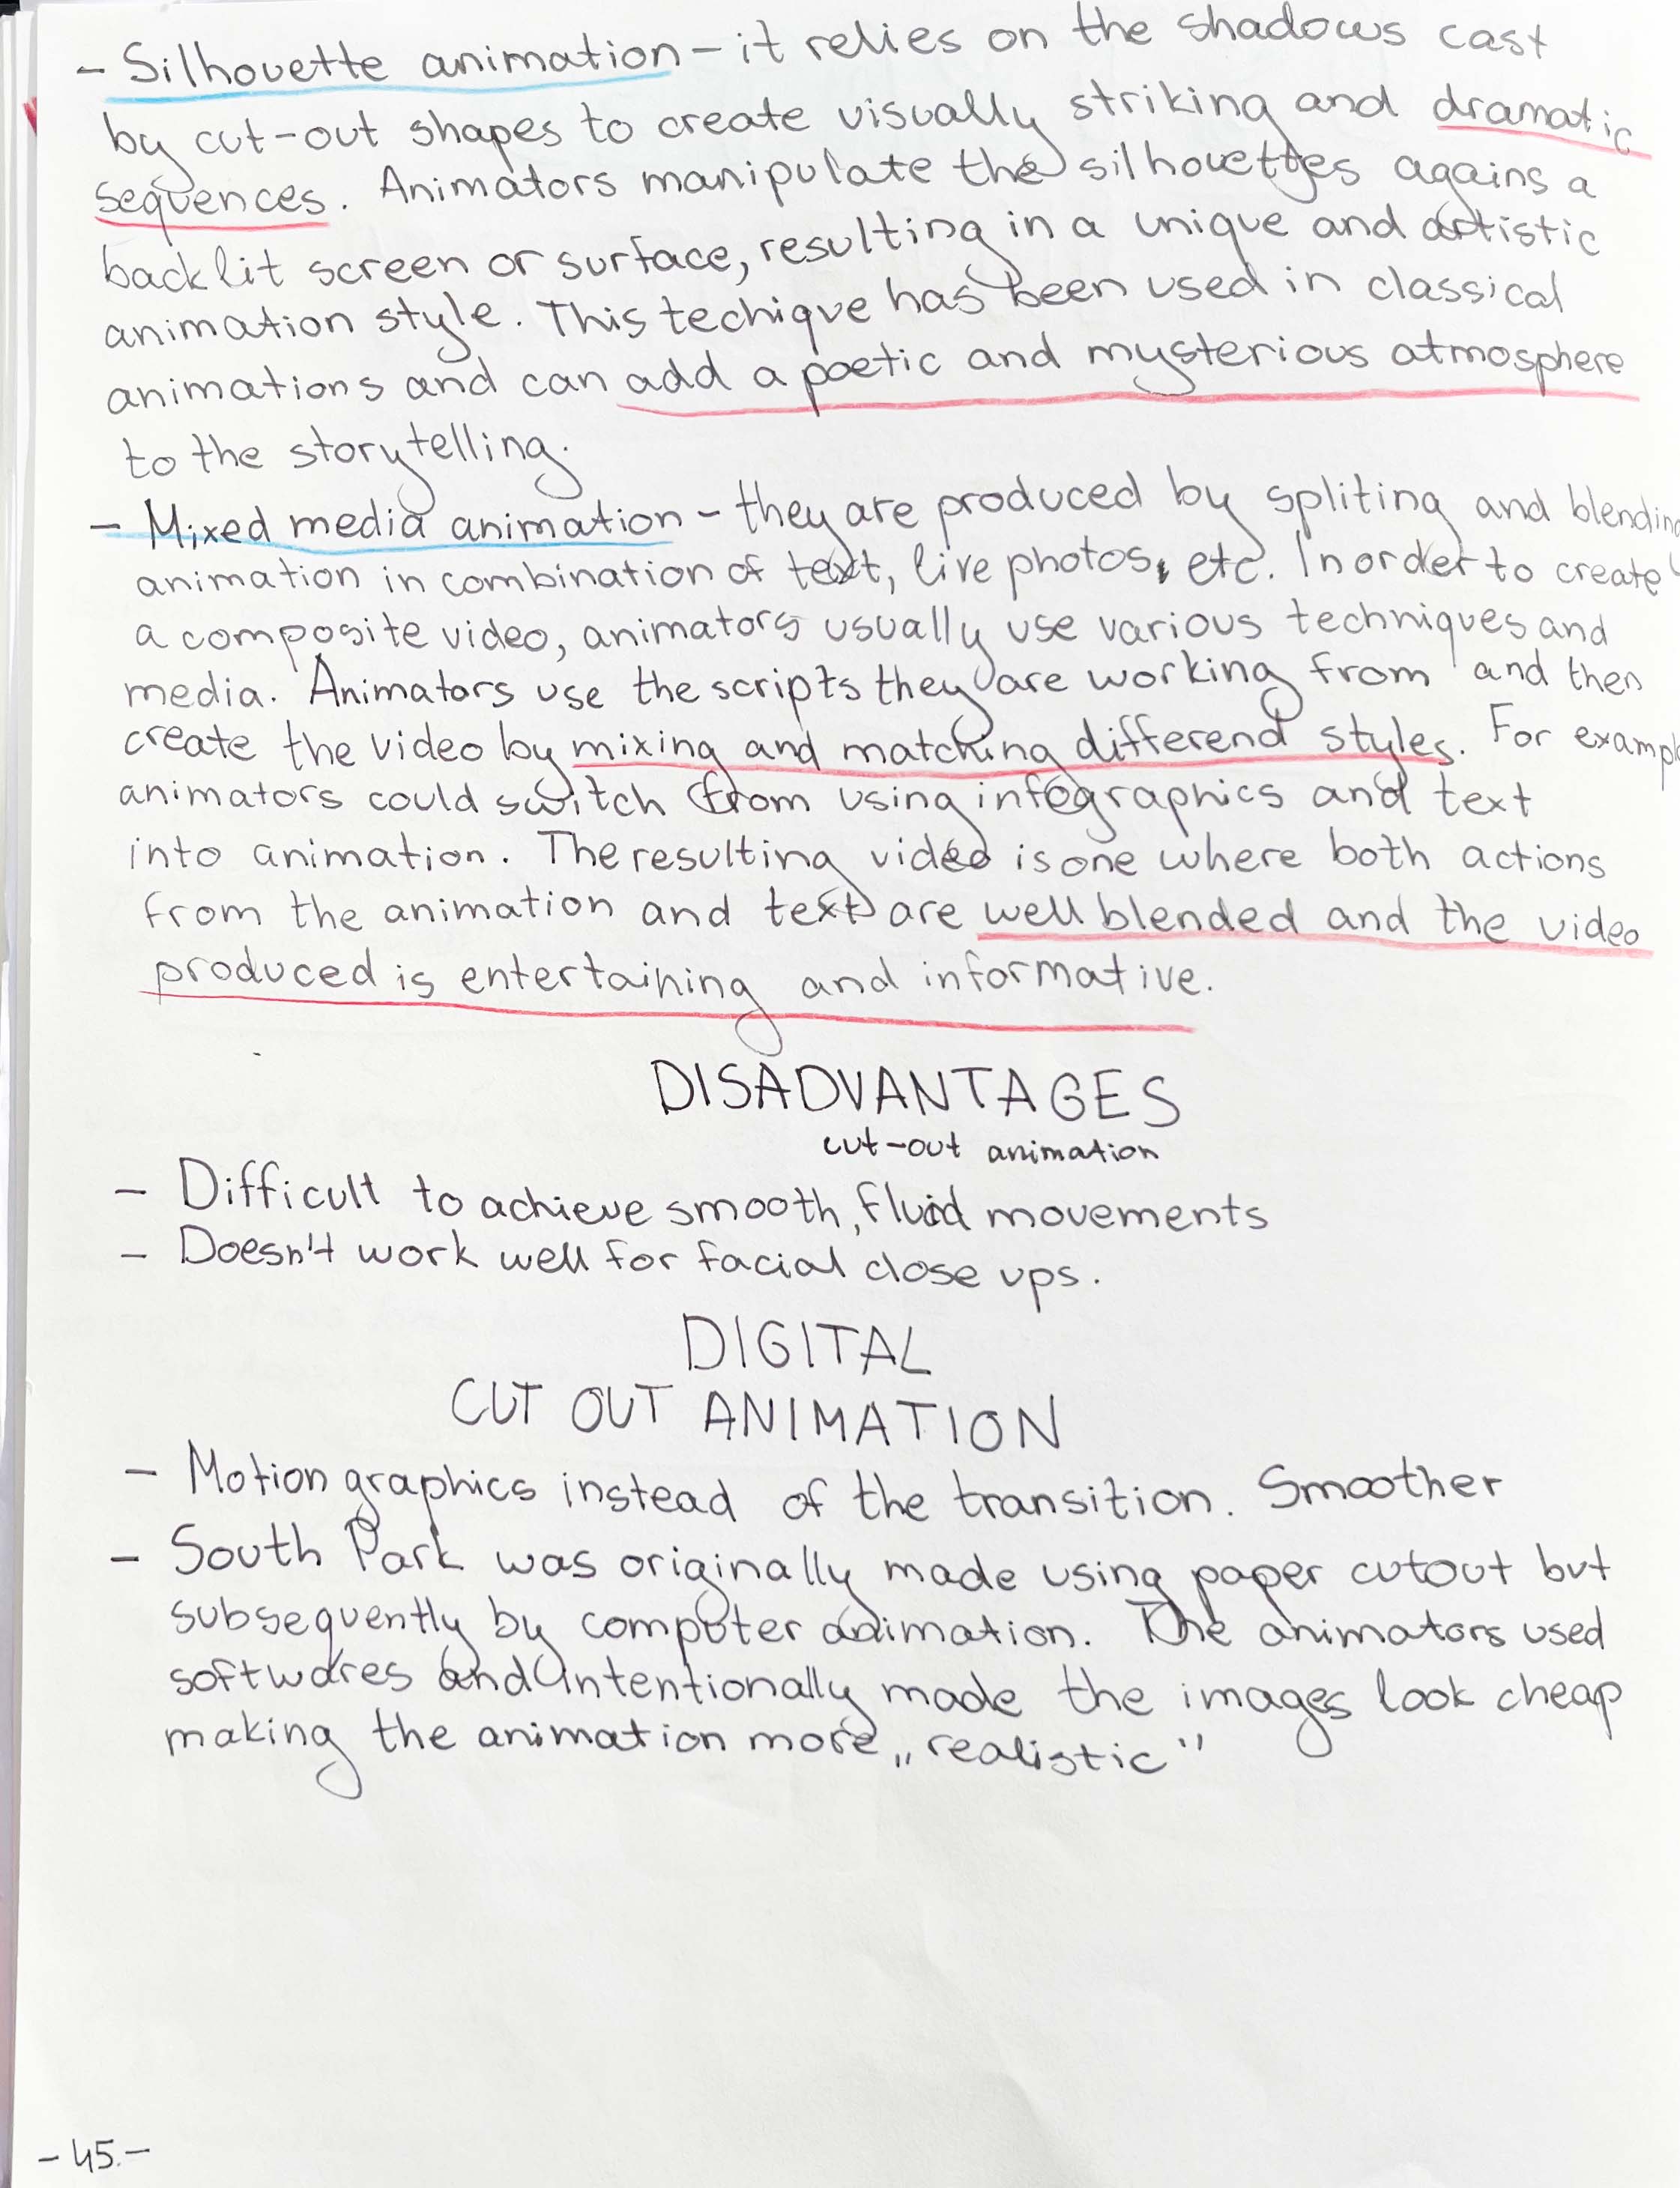 - Silhouette animation - it relies on the shadows cast
by cut-out shapes to create visually striking and dramatic
sequences. Animators manipulate the silhouettes agains a
backlit screen or surface, resulting in a unique and artistic
animation style. This techique has been used in classical
animations and can add a poetic and mysterious atmosphere
to the storytelling.
- Mixed media animation - they are produced by spliting and blending
animation in combination of text, live photos, etc. In order to create
a composite video, animators usually use various techniques and
media. Animators use the scripts they are working from and then
create the video by mixing and matching differend styles. For exampl
animators could switch from using infographics and text
into animation. The resulting video is one where both actions
from the animation and text are well blended and the video
produced is entertaining and informative.
DISADVANTAGES
cut-out animation
- Difficult to achieve smooth, fluid movements
- Doesn't work well for facial close ups.
DIGITAL
CUT OUT ANIMATION
- Motion graphics instead of the transition. Smoother
- South Park was originally made using paper cutout but
subsequently by computer animation. The animators used
softwares and intentionally made the images look cheap
making the animation more „realistic"
- 45.-